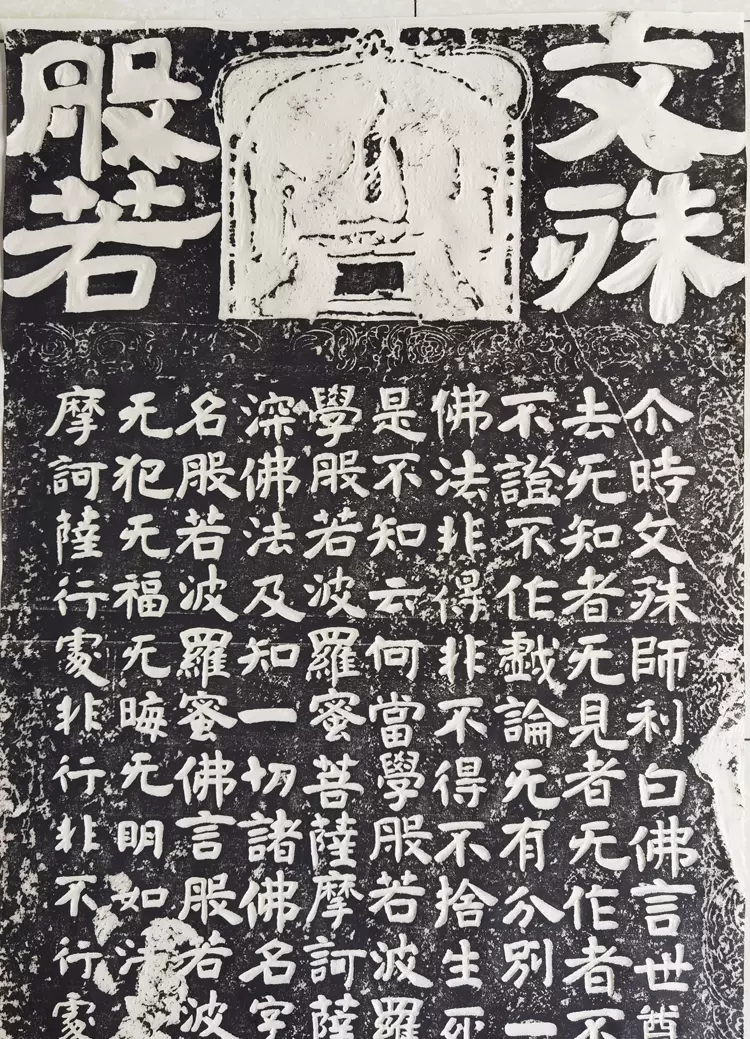 文殊
般若
尒時文殊師利白佛言世尊
去无知者无見者无作者不
不證不作戲論无有分別一
佛法非得非不得不捨生死
是不知云何當學般若波羅
學般若波羅蜜菩薩摩訶薩
深佛法及知一切諸佛名字
名般若波羅蜜佛言般若波
无犯无福无晦无明如法
摩訶薩行處非行非不行處